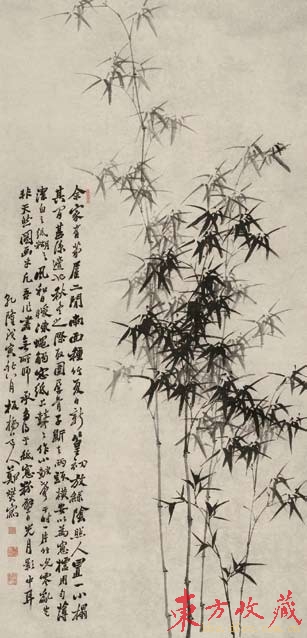 余家有茅屋二間南面種竹夏日新篁初放綠陰照人置一小榻
其中甚涼適也秋冬之際取圍屏骨子斷去兩頭橫安以為窗櫺用勻薄
潔白之紙糊之風和日暖凍蠅觸窗紙上鼕鼕作小鼓聲于時一片竹影零亂豈
非天然圖畫乎凡吾畫竹無所師承多得于紙窗粉壁日光月影中耳
乾隆戊寅 月 板橋 鄭燮寫
東方收藏